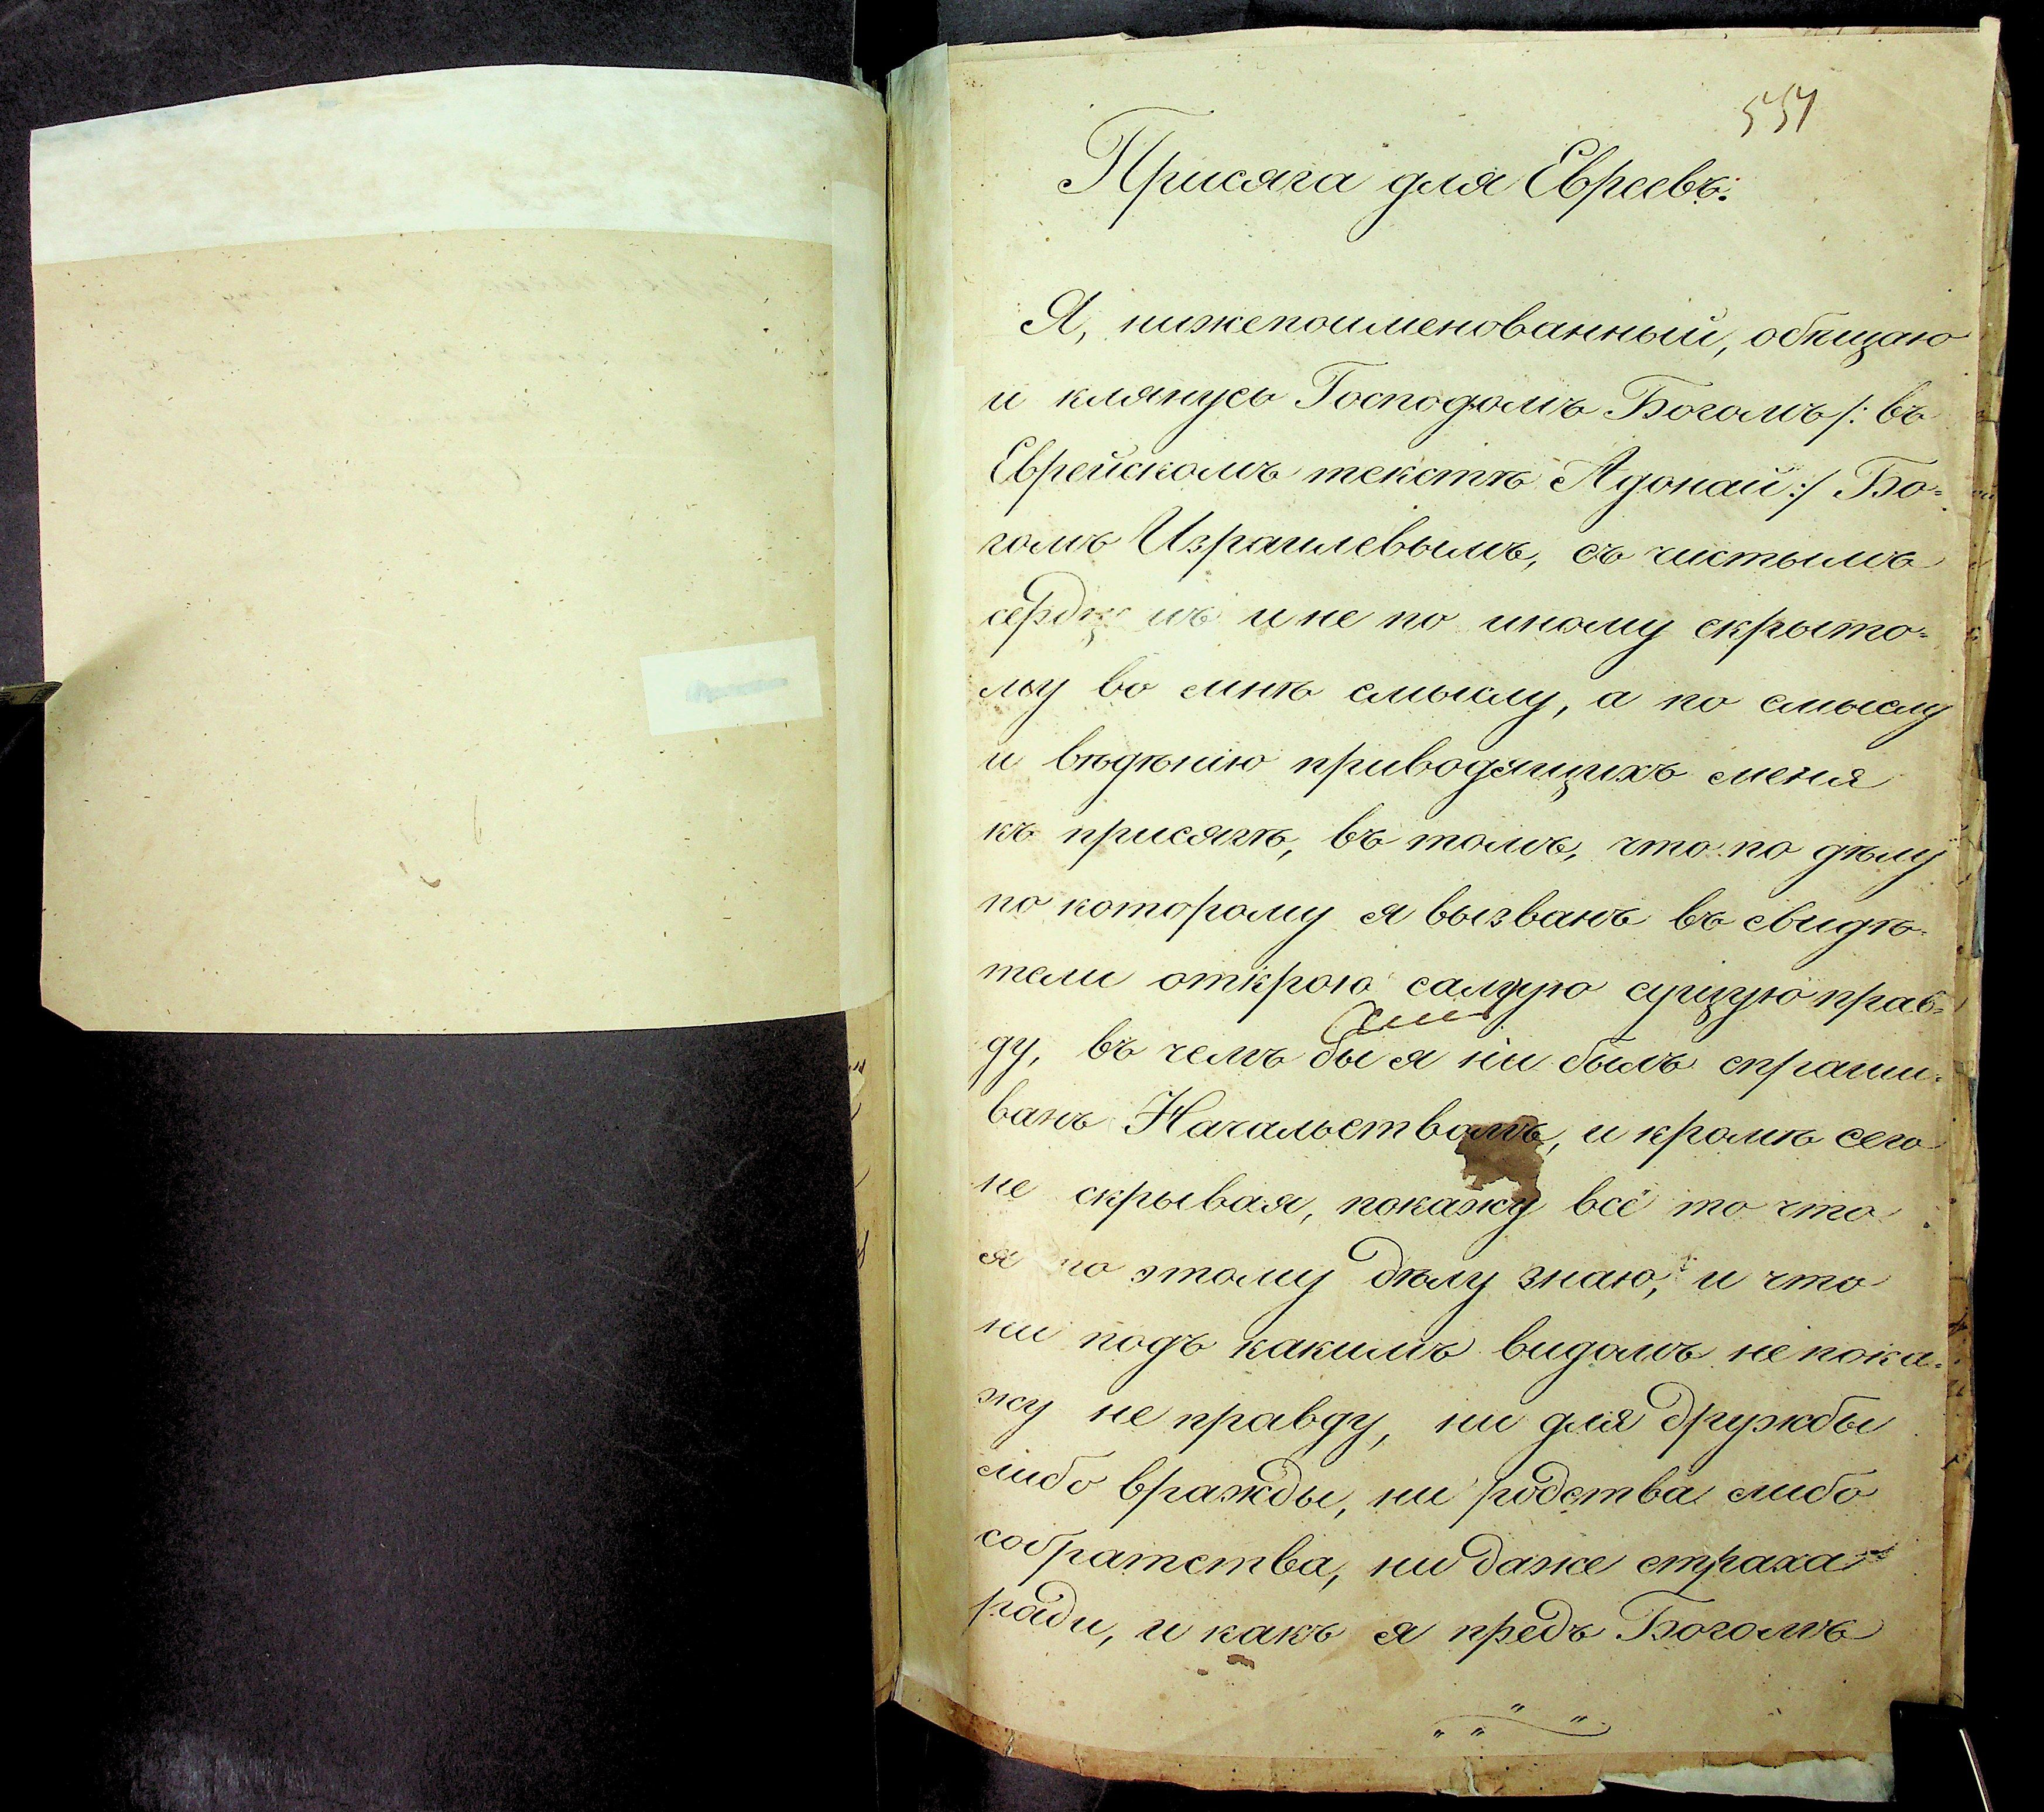 551
Присяга для Евреевъ.
Я, нижепоименованный, обѣщаю
и клянусь Господомъ Богомъ /: въ
Еврейскомъ текстѣ Адонай :/ Бо=
гомъ Израилевымъ, съ чистымъ
сердц мъ и не по иному скрыто=
му во мнѣ смыслу, а по смыслу
и вѣдѣнію приводящихъ меня
къ присягѣ, въ томъ, что по дѣлу
по которому я вызванъ въ свидѣ=
тели открою самую сущую прав=
ду, въ чемъ бы я ни былъ спраши=
ванъ Начальствомъ, и кромѣ сего
не скрывая, покажу всё то что
я по этому дѣлу знаю, и что
ни подъ какимъ видомъ не пока=
жу не правду, ни для дружбы
либо вражды, ни родства либо
собратства, ни даже страха
ради, и какъ я предъ Богомъ